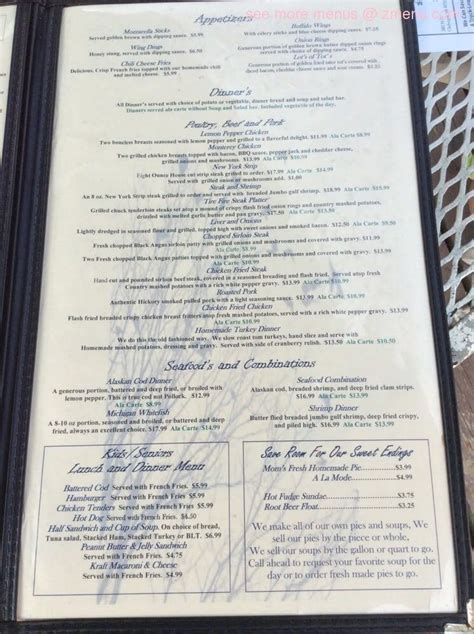 see more menus @ zmenu.com
Appetizers
Mozzarella Sticks
Served golden brown with dipping sauce. $5.95
Wing Dings
Honey stung, served with dipping sauce. $5.99
Chili Cheese Fries
Delicious, Crisp French fries topped with our homemade chili
and melted cheese. $5.99
Buffalo Wings
With celery sticks and blue cheese dipping sauce. $7.25
Onion Rings
Generous portion of golden brown batter dipped onion rings
served with dipping sauce. $4.75
Lot's of Tot's
Generous portion of golden fried tater tots covered with
diced bacon, cheddar cheese sauce and sour cream.
Dinner's
All Dinner's served with choice of potato or vegetable, dinner bread and soup and salad bar.
Dinners served ala carte without Soup and Salad bar. Includes vegetable of the day.
Poultry, Beef and Pork
Lemon Pepper Chicken
Two boneless breasts seasoned with lemon pepper and grilled to a flavorful delight. $11.99 Ala Carte $8.99
Monterey Chicken
Two grilled chicken breasts topped with bacon, BBQ sauce, pepper jack and cheddar cheese,
grilled onions and mushrooms. $13.99 Ala Carte $10.99
New York Strip
Eight Ounce House cut strip steak grilled to order. $17.99 Ala Carte $14.99
Served with grilled onion or mushrooms add. $1.00
Steak and Shrimp
An 8 oz. New York Strip steak grilled to order and served with breaded Jumbo gulf shrimp. $18.99 Ala Carte
Tire Fire Steak Platter
Grilled chuck tenderloin steaks set atop a mound of crispy flash fried onion rings and country mashed potatoes,
drizzled with melted garlic butter and pan gravy. $17.50 Ala Carte $13.50
Liver and Onions
Lightly dredged in seasoned flour and grilled, topped with sweet onions and smoked bacon. $12.50 Ala Carte
Chopped Sirloin Steak
Fresh chopped Black Angus sirloin patty with grilled onions and mushrooms and covered with gravy.
Ala Carte $10.99
Chicken Fried Steak
Hand cut and pounded sirloin beef steak, covered in a seasoned breading and flash fried. Served atop fresh
Country mashed potatoes with a rich white pepper gravy. $13.99 Ala Carte $10.99
Roasted Pork
Authentic Hickory smoked pulled pork with a light seasoning sauce. $13.99 Ala Carte $10.99
Chicken Fried Chicken
Flash fried breaded crispy chicken breast fritters atop fresh mashed potatoes, served with a rich white pepper gravy. $13.99
Ala Carte $10.99
Homemade Turkey Dinner
We do this the old fashioned way. We slow roast tom turkeys, hand slice and serve with
Homemade mashed potatoes, dressing and gravy. Served with side of cranberry relish. $13.50
Seafood's and Combinations
Alaskan Cod Dinner
A generous portion, battered and deep fried, or broiled with
lemon pepper. This is true cod not Pollock. $12.99
Ala Carte $8.99
Michigan Whitefish
A 8-10 oz portion, seasoned and broiled, or battered and deep
fried, always an excellent choice. $17.99 Ala Carte $14.99
Seafood Combination
Alaskan cod, breaded shrimp, and deep fried clam strips.
$16.99 Ala Carte $12.99
Shrimp Dinner
Butter flied breaded jumbo gulf shrimp, deep fried crispy,
and piled high. $16.99 Ala Carte $12.99
Kids/Seniors
Lunch and Dinner Menu
Battered Cod Served with French Fries. $5.99
Hamburger Served with French Fries. $5.99
Chicken Tenders Served with French Fries. $5.99
Hot Dog Served with French Fries. $4.50
Half Sandwich and Cup of Soup. On choice of bread,
Tuna salad, Stacked Ham, Stacked Turkey or BLT. $6.99
Peanut Butter & Jelly Sandwich
Served with French Fries. $4.75
Kraft Macaroni & Cheese
Served with French Fries. $4.99
Save Room For Our Sweet Endings
Mom's Fresh Homemade Pie....$3.99
A La Mode....$4.99
Hot Fudge Sundae....$3.99
Root Beer Float....$3.99
We make all of our own pies and soups. We
sell our pies by the piece or whole.
We sell our soups by the gallon or quart to go.
Call ahead to request your favorite soup for the
day or to order fresh made pies to go.